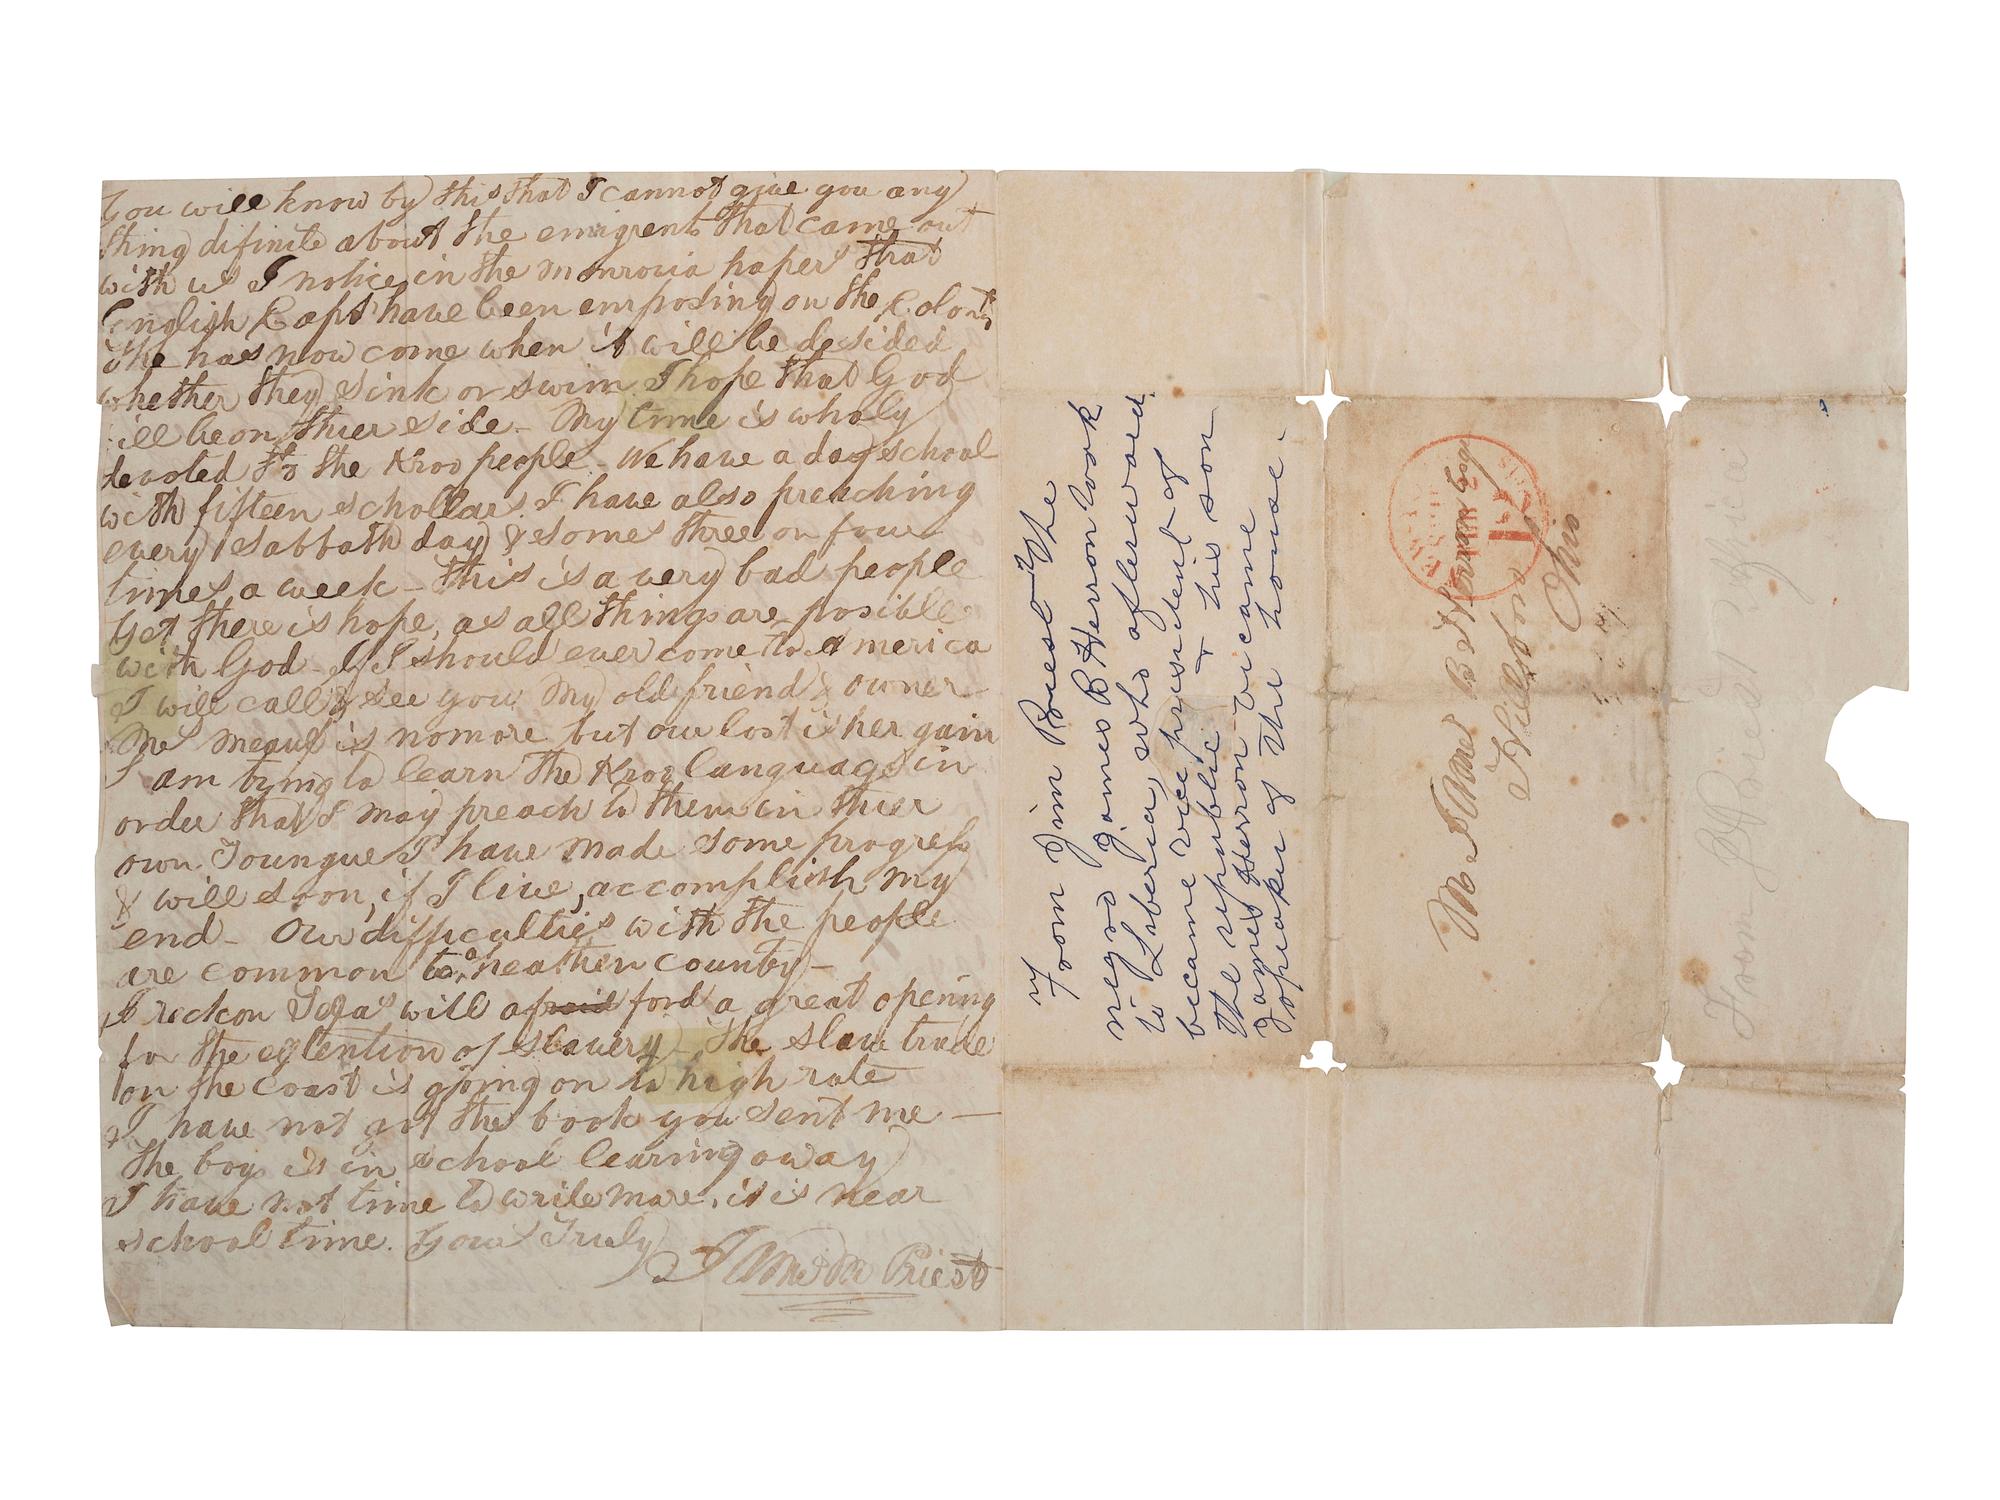 You will know by this that I cannot give you any
thing difinite about the emigrents that came out
with us I notice in the Monrovia papers that
English Capts have been emposing on the Colony
the has now come when it will be desided
whether they sink or swim I hope that God
will be on thier side - My time is wholy
devoted to the Kroo people - We have a day school
with fifteen schollars. I have also preaching
every Sabbath day & some three or four
times a week - this is a very bad people
Yet there is hope, as all things are posible
with God - If I should ever come to America
I will call & see you. My old friend & owner
Mrs is no more but our lost is her gain
I am trying to learn the Kroo Language in
order that I may preach to them in thier
own Toungue I have made some progress
& will soon, if I live, accomplish my
end - Our difficulties with the people
are common to a heathen county -
I reckon Texas will afraid ford a great opening
for the extention of slavery - The slave trade
on the coast is going on to high rate
I have not got the book you sent me -
The boy is in school learing away
I have not time to write more, it is near
school time. Yours Truly
James M Priest
"From Jim Priest" The
negro James B Herron took
to Liberia, who afterward
became vice president of
the republic & his son
James Herron became
speaker of the house.
Mr James B Herron Esq
Hillsboro
Ohio
From J Priest Africa